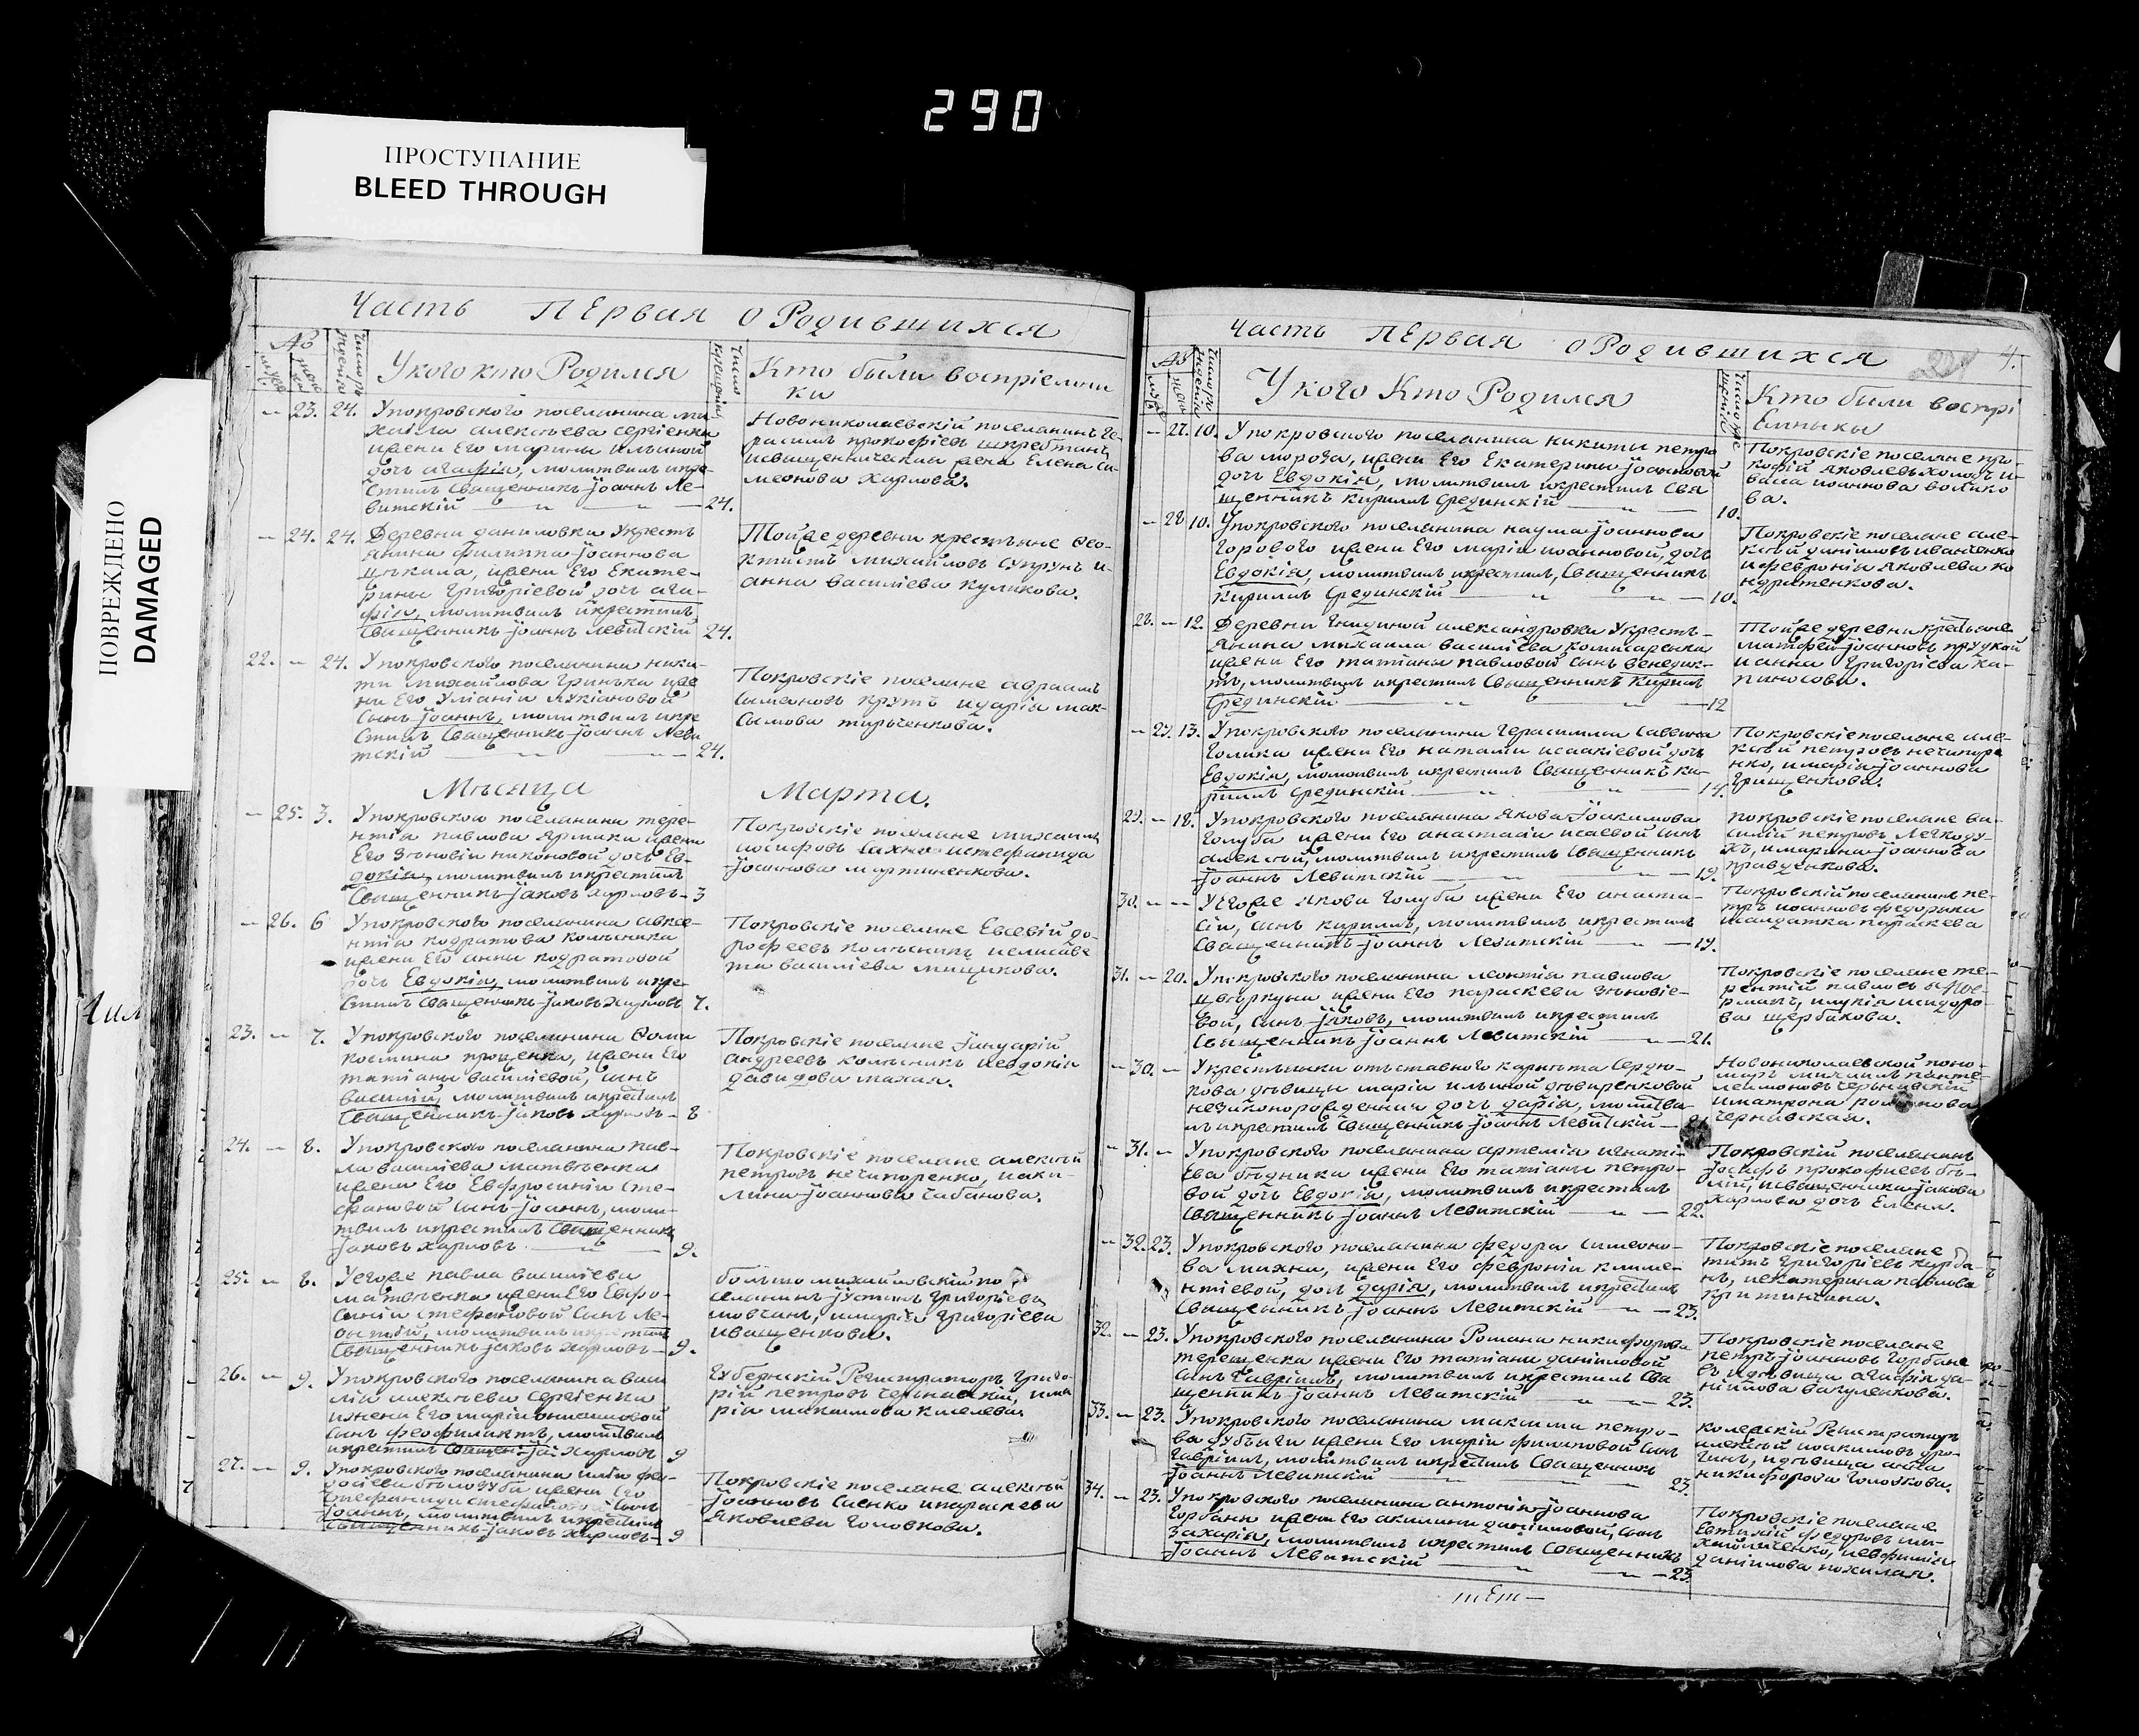 290
ПРОСТУПАНИЕ
BLEED THROUGH
ПОВРЕЖДЕНО
DAMAGED
Часть ПЕрвая о Родившихся
У кого кто Родился
Кто были воспрiемни
ки
23. 24. У покровского поселянина ми-
хаила алексѣева сергiенка
ижени Его марины ильиной
дочь агафiя, молитвилъ икре-
стилъ Священникъ Iоаннъ Ле-
витскiй 24.
Новониколаевскiй поселянинъ Ге-
расимъ прокофiевъ
исвященническая жена Елена си-
меонова Харлова.
24. 24. Деревни даниловки Укресть
янина филиппа Iоаннова
цѣкала, ижени Его Екате-
рины Григорiевой дочь ага-
фiя, молитвилъ икрестилъ
Священникъ Iоаннъ Левитскiй 24.
Тойже деревни крестьяне Ѳео-
ктистъ михайловъ Супрунъ и-
анна василiева куликова.
22. 24. У покровского поселянина ники-
ти михайлова Гринька иже
ни Его Улiанiи Лукiановой
Сынъ Iоаннъ, молитвилъ икре
стилъ Священникъ Iоаннъ Леви
тскiй 24.
Покровскiе поселяне авраамъ
Симеоновъ крутъ идарiя мак-
симова
Мѣсяца Марта.
25. 3. У покровского поселянина тере-
нтiя павлова ярмака ижени
Его Зѣновiи никоновой дочь Ев-
докiя, молитвилъ икрестилъ
Священникъ Iаковъ Харловъ 3
Покровскiе поселяне михаилъ
иосифовъ истефанида
Iоаннова мартиненкова.
26. 6 У покровского поселянина авксе-
нтiя кодратова колѣсника
ижени Его анны кодратовой
дочь Евдокiя, молитвилъ икре-
стилъ Священникъ Iаковъ Харловъ 7.
Покровскiе поселяне Евсевiй до-
рофеевъ колѣсникъ иелисаве
та василiева мищикова.
23. 7. У покровского поселянина Ѳомы
космина проценка, ижени Его
татiаны василiевой, Сынъ
василiй, молитвилъ икрестилъ
Священникъ Iаковъ Харловъ 8
Покровскiе поселяне Iануарiй
андреевъ колѣсникъ иевдокiя
давидова махия.
24. 8. У покровского поселянина пав-
ла василiева матвѣенка
ижени Его Евфросинiи сте-
фановой Сынъ Iоаннъ, моли-
твилъ икрестилъ Священникъ
Iаковъ Харловъ 9.
Покровскiе поселяне алексѣй
петровъ нечипоренко, иаки-
лина Iоаннова Чабанова.
25. 8. Уегоже павла василiева
матвѣенка ижени Его Евфро-
синiи стефановой Сынъ Ле-
онтiй, молитвилъ икрестилъ
Священникъ Iаковъ Харловъ 9.
больше михайловскiй по
селянинъ Iустинъ Григорiевъ
мовчанъ, имарiя Григорiева
иващенкова.
26. 9. У покровского поселянина васи
лiя алексѣева сергiенка
ижени Его марiи онисимовой
Сынъ феофилактъ, молитвилъ
икрестилъ Харловъ 9
Губернскiй Регистраторъ Григо-
рiй петровъ Чернявскiй, има
рiя максимова киселева.
27. 9. У покровского поселянина илiи фео-
досiева бѣлозуба ижени Его
стефаниды Сынъ
Iоаннъ, молитвилъ икрестилъ
Священникъ Iаковъ Харловъ 9
Покровскiе поселяне алексѣй
Iоанновъ Сиенко ипараскева
Яковлева Головкова.
Часть ПЕрвая о Родившихся
4.
У кого Кто Родился
Кто били воспрi
Емники
27. 10. У покровского поселянина никити петро
ва мороза, ижени Его Екатерины Iоанновой
дочь Евдокiя, молитвилъ икрестилъ Свя
щенникъ Кириллъ Срединскiй 10.
Покровскiе поселяне про-
кофiй яковлевъ холодъ и-
васса иоаннова волико
ва.
28 10. У покровского поселянина наума Iоаннова
Горового ижени Его марiи иоанновой, дочь
Евдокiя, молитвилъ икрестилъ, Священникъ
Кириллъ Срединскiй 10.
Покровскiе поселяне але-
ксѣй данiиловъ иванченко
ифевронiя яковлева ко
ндратенкова.
28. 12. Деревни александровки Укресть-
янина михаила василiева комисаренка
ижени Его татiаны павловой Сынъ Венедик-
тъ, молитвилъ икрестилъ Священникъ Кирилъ
Срединскiй 12
Тойже деревни крестьяне
матфей Iоанновъ прудкой
ианна григорiева ка-
пиносова.
29. 13. У покровского поселянина Герасима Саввина
Голика ижени Его наталiи исаакiевой дочь
Евдокiя, молитвилъ икрестилъ Священникъ Ки-
риллъ Срединскiй 14.
Покровскiе поселяне але-
ксѣй петровъ нечипоре
нко, имарiя Iоаннова
Грищенкова.
29. 18. У покровского поселянина Якова Iоакимова
Голуба ижени Его анастасiи исаевой Сынъ
алексѣй, молитвилъ икрестилъ Священникъ
Iоаннъ Левитскiй 19.
покровскiе поселяне ва-
силiй петровъ Легкоду-
хъ, имарина Iоаннова
правденкова.
30. Уегоже якова Голуба ижени Его анаста-
сiи, Сынъ кирилъ, молитвилъ икрестилъ
Священникъ Iоаннъ Левитскiй 19.
Покровскiй поселянинъ пе-
тръ иоанновъ федорика
исолдатка параскева
31. 20. У покровского поселянина леонтiя павлова
цвѣркуна ижени Его параскевы Зѣновiе-
вой, Сынъ Iаковъ, молитвилъ икрестилъ
Священникъ Iоаннъ Левитскiй 21.
Покровскiе поселяне те-
рентiй павловъ
рмакъ, илукiя исидоро-
ва щербакова.
30. Укрестьянки отъставного карнета Сердю-
кова дѣвицы марiи ильиной дѣвиренковой
незаконорожденная дочь дарiя, молитви-
лъ икрестилъ Священникъ Iоаннъ Левитскiй 21
Новониколаевской поно-
марь михаилъ панте-
леимоновъ Чернявскiй
иматрона
Чернявская.
31. У покровского поселянина артемiя игнатi-
Ева бѣдника ижени Его татiаны петро-
вой дочь Евдокiя, молитвилъ икрестилъ
Священникъ Iоаннъ Левитскiй 22.
Покровскiй поселянинъ
Iосифъ прокофiевъ бѣ-
лiй, исвященника Iакова
Харлова дочь Елена.
32. 23. У покровского поселянина федора Симеоно-
ва михна, ижени Его февронiи климе-
нтiевой, дочь дарiя, молитвилъ икрестилъ
Священникъ Iоаннъ Левитскiй 23.
Покровскiе поселяне
титъ Григорiевъ курба-
нъ, иекатерина павлова
критинина.
32. 23. У покровского поселянина Романа никифорова
терещенка ижени Его татiаны данiиловой
Сынъ Гаврiилъ, молитвилъ икрестилъ Свя
щенникъ Iоаннъ Левитскiй 23.
Покровскiе поселяне
петръ Iоанновъ Горбане
въ идѣвица агафiя да-
нiилова вакуленкова.
33. 23. У покровского поселянина максима петро-
ва ижени Его марiи филиповой Сынъ
Гаврiилъ, молитвилъ икрестилъ Священникъ
Iоаннъ Левитскiй 23.
колежскiй Регистраторъ
алексѣй иоакимовъ
идѣвица анна
никифорова Головкова.
34. 23. У покровского поселянина антонiя Iоаннова
Горбаня ижени Его акилини данiиловой, Сынъ
Захарiя, молитвилъ икрестилъ Священникъ
Iоаннъ Левитскiй 23.
Покровскiе поселяне
Евтихiй федоровъ ми-
хайличенко, иевфимiя
данiилова пожилая.